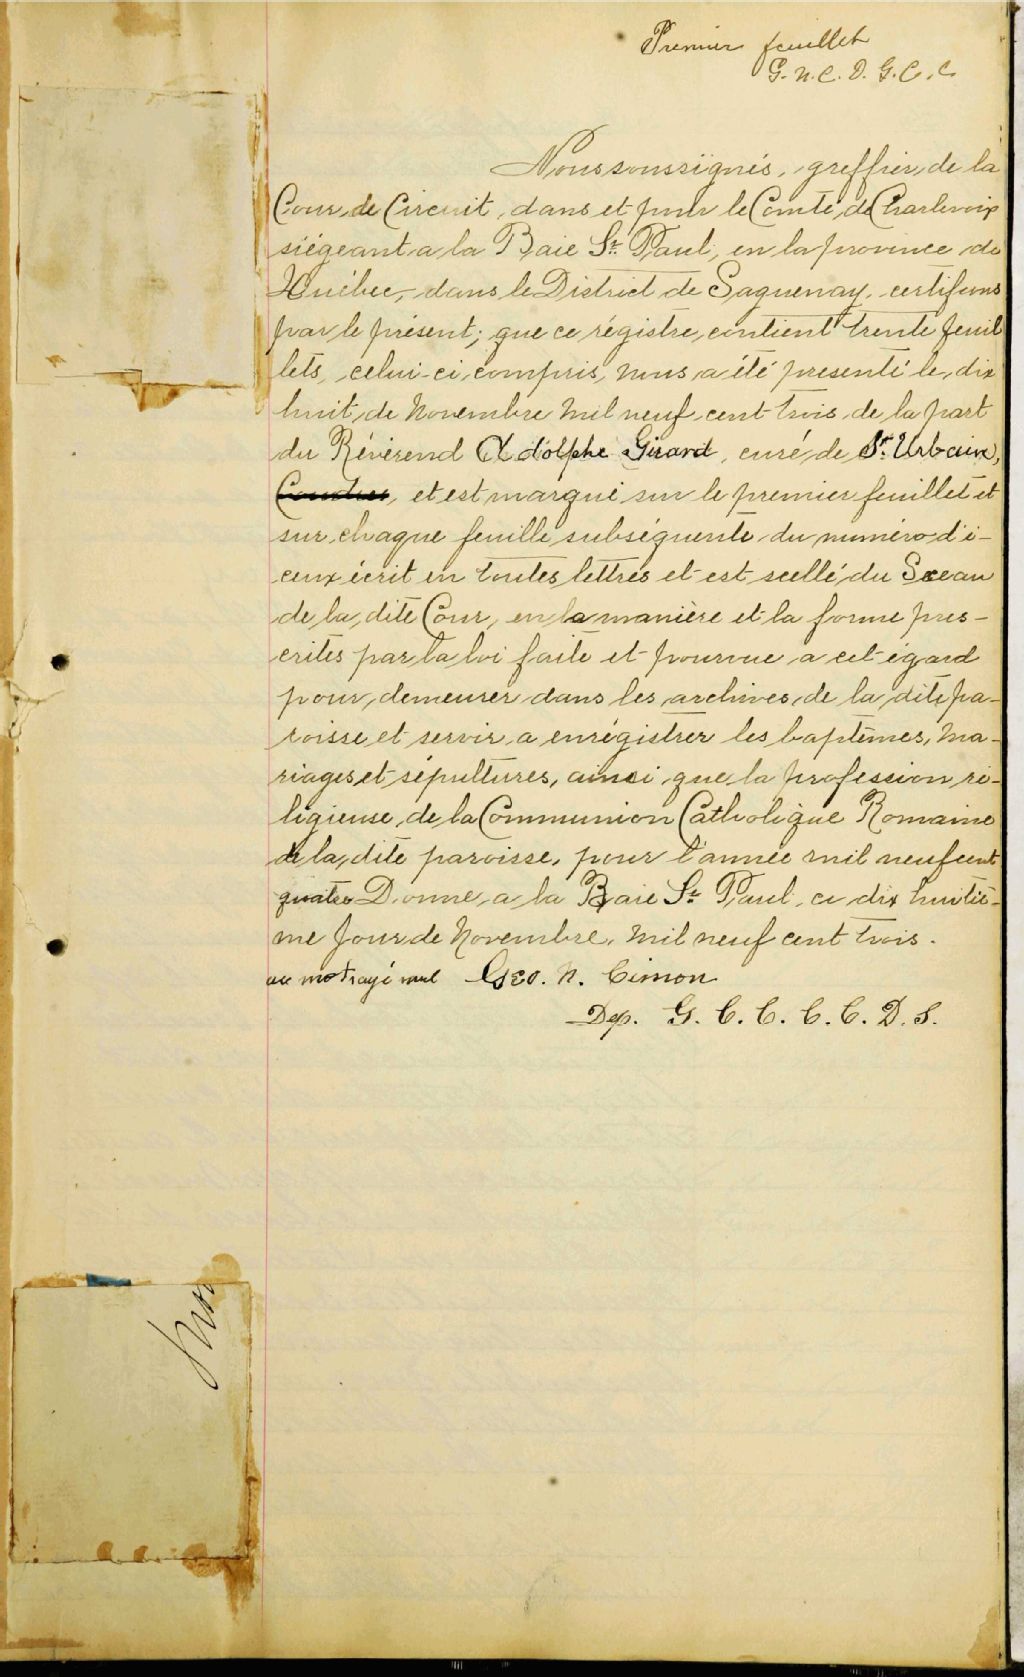 Premier feuillet
G. N. C. D. G. C. C.
Nous soussignés, greffier, de la
Cour de Circuit, dans et pour le Comté de Charlevoix
siégeant a la Baie St. Paul, en la province de
Québec, dans le District de Saguenay, certifions
par le présent; que ce régistre, contient trente feuil
lets, celui-ci, compris, nous a été presenté le, dix
huit, de Novembre Mil neuf cent trois de la part
du Révérend Adolphe Girard, curé, de St. Urbain,
Coudres, et est marqué sur le premier feuillet et
sur, chaque feuille subséquente du numéro d'i-
ceux écrit en toutes lettres et est scellé, du Sceau
de la, dite Cour, en la manière et la forme pres-
crites par la loi faite et pourvue a cet égard
pour, demeurer dans les archives, de la dite pa-
roisse et servir a enrégistrer les baptêmes, Ma-
riages et sépultures, ainsi que la profession ré-
ligieuse, de la Communion Catholique Romaine
de la, dite paroisse, pour l'année mil neuf cent
quatre Donné, a la Baie St. Paul, ce dix huitiè-
me Jour de Novembre, Mil neuf cent trois.
un mot rayé nul Geo. N. Cimon
Dep. G. C. C. C. C. D. S.